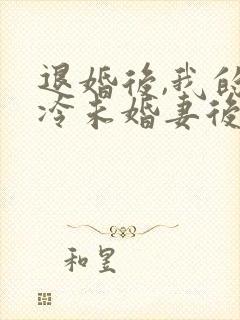 退婚後,我的
冷未婚妻後
和昱